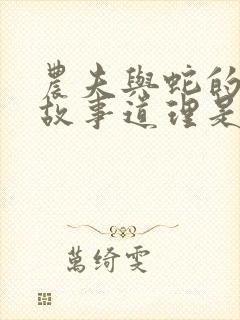 農夫與蛇的
故事道理是
萬綺雯